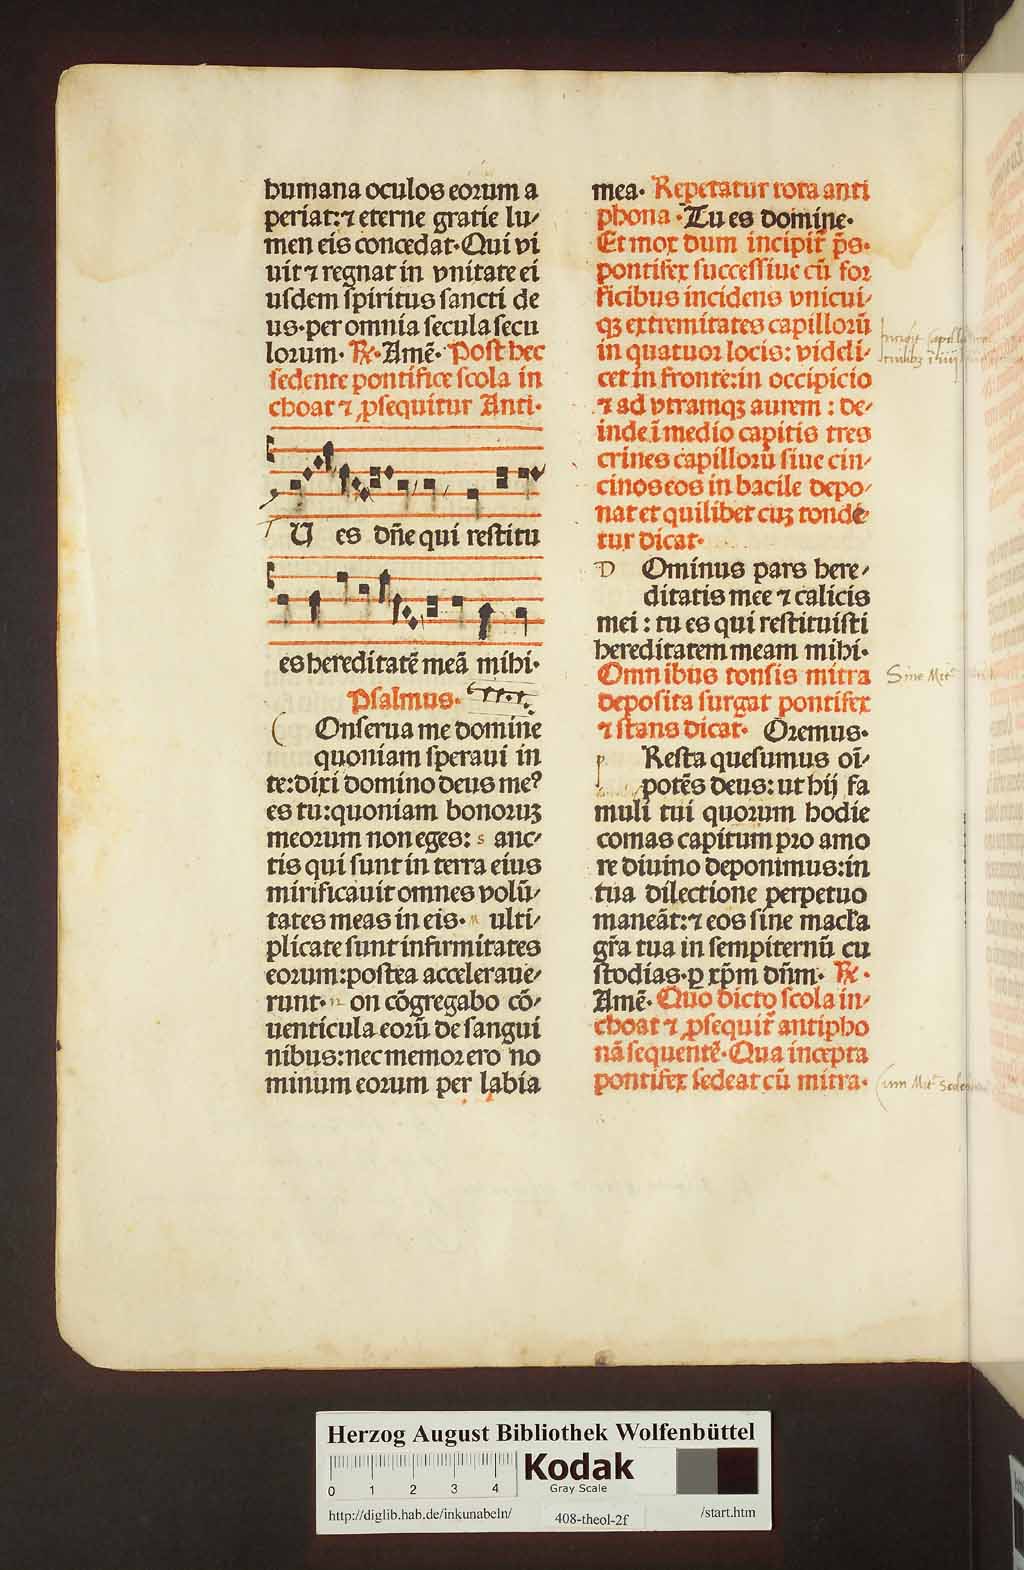 humana oculos eorum a
periat:⁊ eterne gratie lu-
men eis concedat. Qui vi
uit ⁊ regnat in vnitate ei
usdem spiritus sancti de
us. per omnia secula secu
lorum. ℟. Amē. Post hec
sedente pontifice scola in
choat ⁊ ꝓsequitur Anti.
T U es dn̄e qui restitu
es hereditatē meā mihi.
Psalmus.
C Onserua me domine
quoniam speraui in
te: dixi domino deus meꝰ
es tu: quoniam bonoruꝫ
meorum non eges: s anc-
tis qui sunt in terra eius
mirificauit omnes volū-
tates meas in eis. m ulti-
plicate sunt infirmitates
eorum: postea accelераue-
runt. n on cōgregabo cō-
uenticula eorū de sangui
nibus: nec memor ero no
minum eorum per labia
mea. Repetatur tota anti
phona. Tu es domine.
Et mox dum incipit̄ p̄s.
pontifex successiue cū for
ficibus incidens vnicui-
qꝫ extremitates capillorū
in quatuor locis: videli-
cet in fronte: in occipicio
⁊ ad vtramqꝫ aurem: de-
inde ī medio capitis tres
crines capillorū siue cin-
cinos eos in bacile depo-
nat et quilibet cuꝫ tondē
tur dicat.
D Ominus pars here-
ditatis mee ⁊ calicis
mei: tu es qui restituisti
hereditatem meam mihi.
Omnibus tonsis mitra
deposita surgat pontifex
⁊ stans dicat. Oremus.
P Resta quesumus oī-
potēs deus: ut hij fa
muli tui quorum hodie
comas capitum pro amo
re diuino deponimus: in
tua dilectione perpetuo
maneāt: ⁊ eos sine macl̄a
gr̄a tua in sempiternū cu
stodias. ꝑ xp̄m dn̄m. ℟.
Amē. Quo dicto scola in-
choat ⁊ ꝓsequit̄ antipho
nā sequentē. Qua incepta
pontifex sedeat cū mitra.
Sine Mit
Cum Mitᵃ
Herzog August Bibliothek Wolfenbüttel
0 1 2 3 4
Kodak
Gray Scale
http://diglib.hab.de/inkunabeln/
408-theol-2f
/start.htm